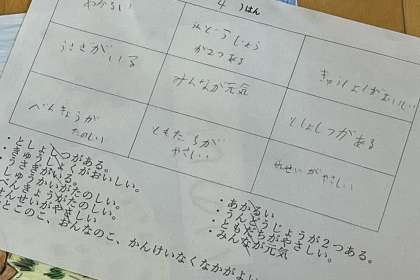 4 うはん
あかるい
うんどうじょう
が2つある
きゅうしょくがおいしい
うさぎがいる
みんなが元気
としょしつがある
べんきょうが
たのしい
ともだちが
やさしい
せんせいがやさしい
・としょしつがある。
・きゅうしょくがおいしい。
・うさぎがいる。
しゅうかいがたのしい。
べんきょうがたのしい。
せんせいがやさしい。
とこのこ、おんなのこ、かんけいなくなかがよい
・あかるい
・うんどうじょうが2つある。
・ともだちがやさしい。
・みんなが元気